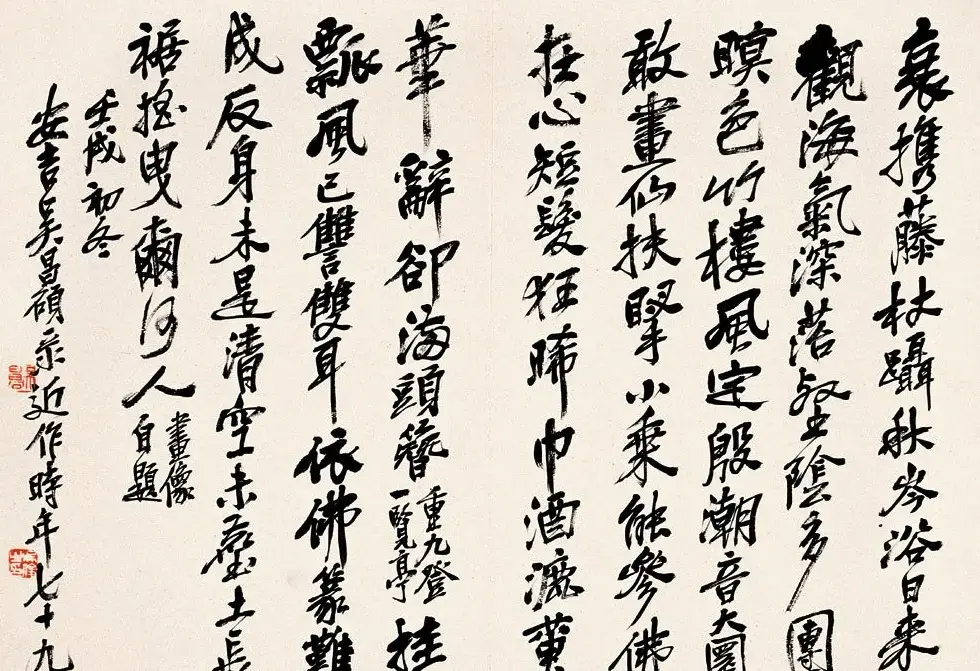 衰携藤杖躡秋岑浴日來
觀海氣深落陰多團
暝色竹樓風定殷潮音大圓
敢畫仙扶掔小乘能參佛
在心短髮狂晞巾酒漉黄
華辭卻滿頭簪
重九登
一覽亭
挂
瓢風已讐雙耳依佛篆難
成反身未是清空未塵土長
裾搖曳爾何人
畫像
自題
壬戌初冬
安吉吳昌碩录近作時年七十九